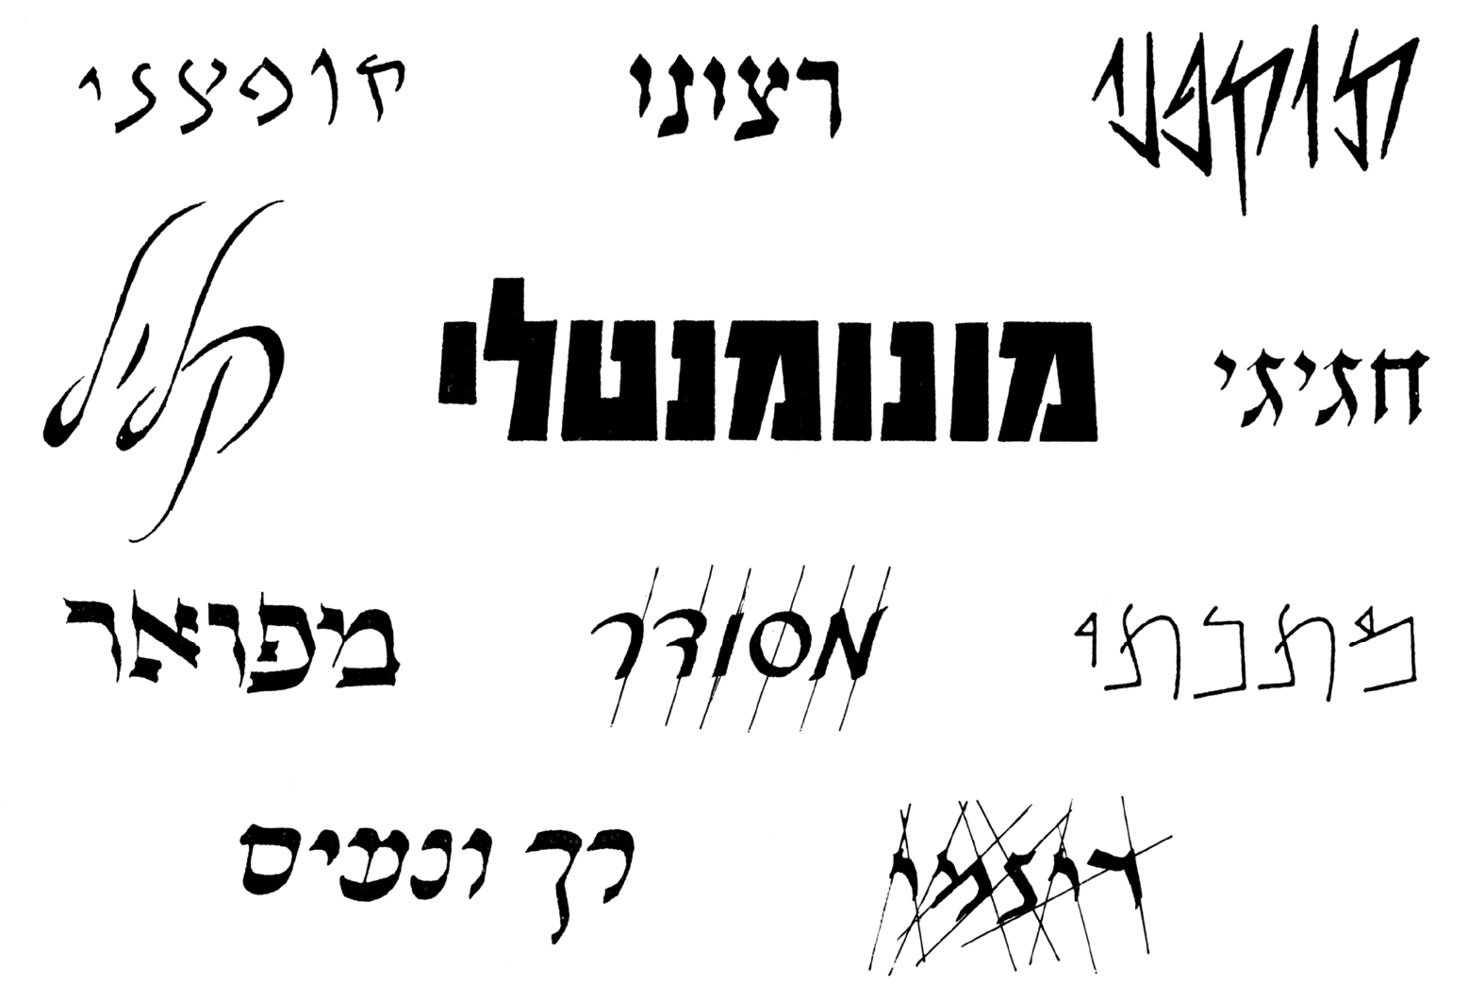 תוקפני רצוני קופצני
חגיגי מונומנטלי קליל
מתכתי מסודר מפואר
דינמי רך ונעים